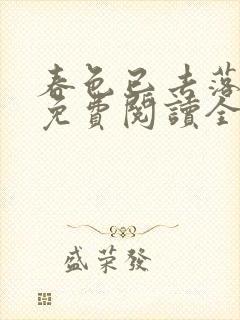 春色已去落
免費閱讀全
盛荣發